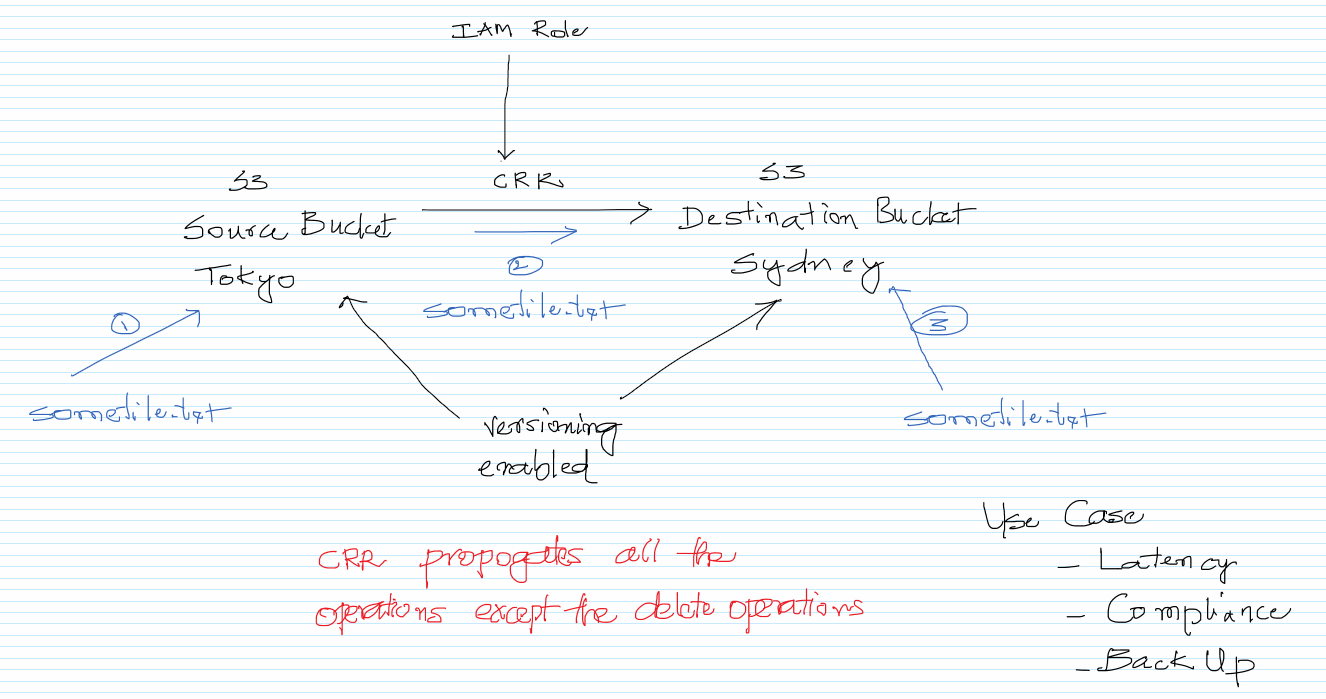 IAM Role
CRR
S3
Source Bucket
Tokyo
S3
Destination Bucket
Sydney
1
somefile.txt
2
somefile.txt
3
somefile.txt
versioning
enabled
CRR propogates all the
operations except the delete operations
Use Case
- Latency
- Compliance
- Back Up